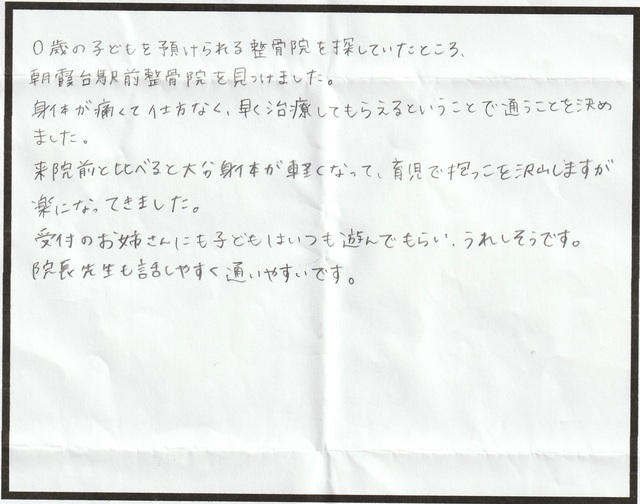 0歳の子どもを預けられる整骨院を探していたところ、
朝霞台駅前整骨院を見つけました。
身体が痛くて仕方なく、早く治療してもらえるということで通うことを決め
ました。
来院前と比べると大分身体が軽くなって、育児で抱っこを沢山しますが
楽になってきました。
受付のお姉さんにも子どもはいつも遊んでもらい、うれしそうです。
院長先生も話しやすく通いやすいです。